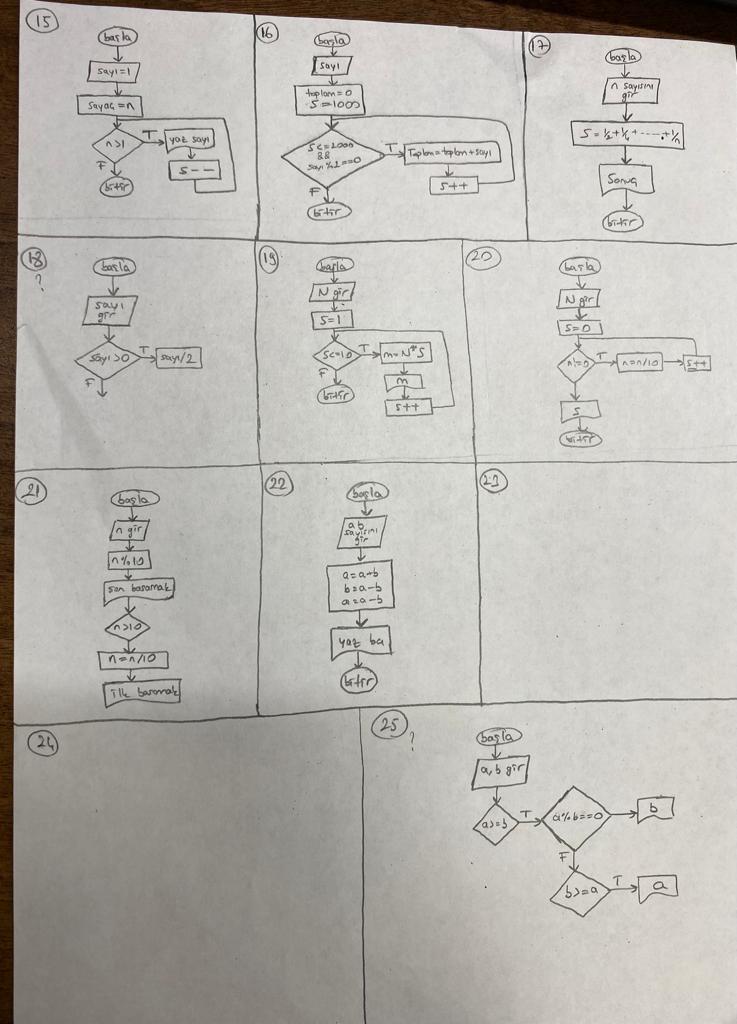 15
başla
sayı=1
sayaç=n
n>1
T
yaz sayı
S--
F
bitir
16
başla
sayı
toplam=0
S=1000
S<=2000
&&
sayı%2==0
T
Toplam=toplam+sayı
S++
F
bitir
17
başla
n sayısını
gir
S=1/2+1/4+-----+1/n
Sonuç
bitir
18
?
başla
sayı
gir
sayı>0
T
sayı/2
F
19
başla
N gir
S=1
S<=10
T
m=N*S
m
S++
F
bitir
20
başla
N gir
S=0
n!=0
T
n=n/10
S++
S
bitir
21
başla
n gir
n%10
son basamak
n>10
n=n/10
ilk basamak
22
başla
a b
sayısını
gir
a=a+b
b=a-b
a=a-b
yaz ba
bitir
23
24
25
?
başla
a,b gir
a>=b
T
a%b==0
b
F
b>=a
T
a